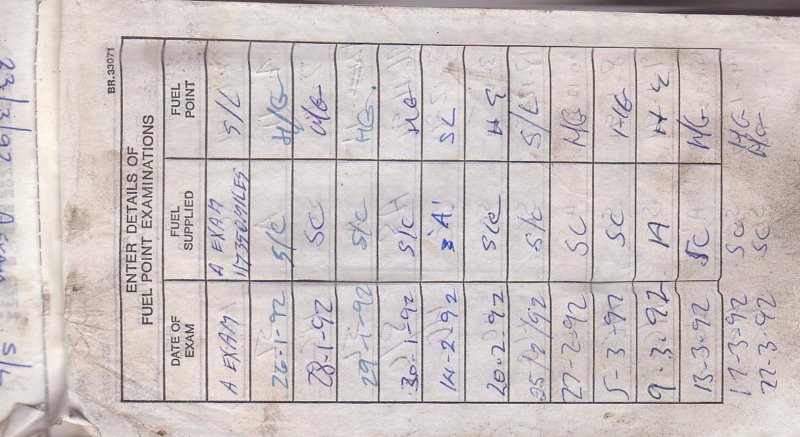 BR.33071
ENTER DETAILS OF
FUEL POINT EXAMINATIONS
DATE OF EXAM FUEL SUPPLIED FUEL POINT
A EXAM A EXAM 117350 MILES S/L
26-1-92 S/C H/G
28-1-92 SC H/G
29-1-92 S/C HG.
30-1-92 S/C HG
14-2-92 'A' SL
20-2-92 S/C H E
25/2/92 S/C S/L
27-2-92 SC HG
5-3-92 SC HG
9.3.92 A H E
13-3-92 SC H/G
17-3-92 SC HG
22-3-92 SC HG
23/3/92 A EXAM S/L